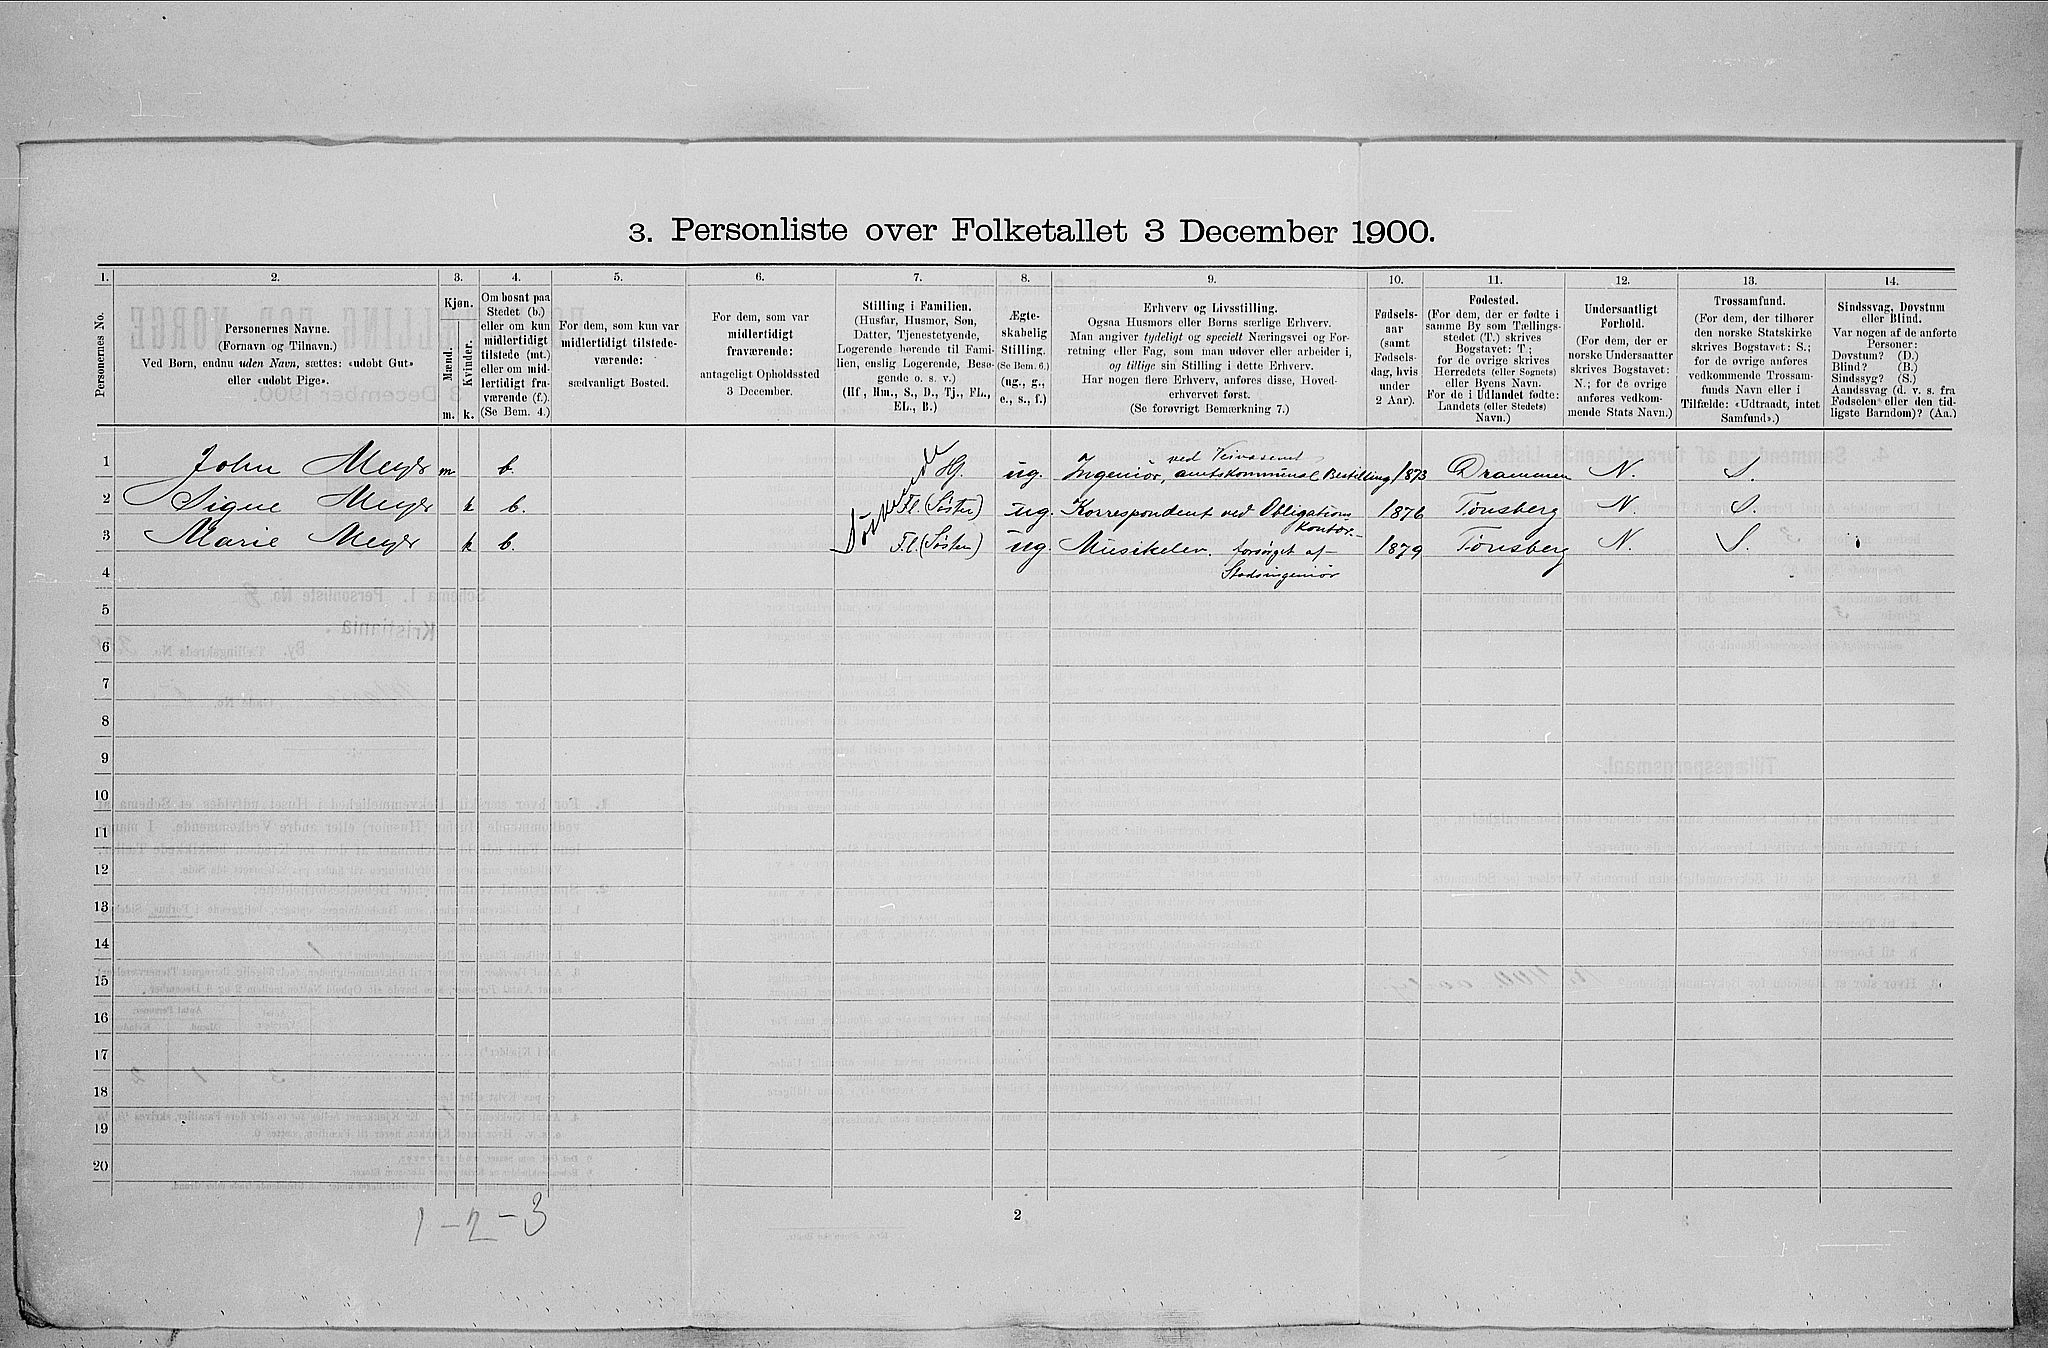 3. Personliste over Folketallet 3 December 1900.
1. 2. 3. 4. 5. 6. 7. 8. 9. 10. 11. 12. 13. 14.
Personernes No.
Personernes Navne.
(Fornavn og Tilnavn.)
Ved Børn, endnu uden Navn, sættes: «udøbt Gut»
eller «udøbt Pige».
Kjøn.
Mænd. Kvinder.
m. k.
Om bosat paa
Stedet (b.)
eller om kun
midlertidigt
tilstede (mt.)
eller om mid-
lertidigt fra-
værende (f.)
(Se Bem. 4.)
For dem, som kun var
midlertidigt tilstede-
værende:
sædvanligt Bosted.
For dem, som var
midlertidigt
fraværende:
antageligt Opholdssted
3 December.
Stilling i Familien.
(Husfar, Husmor, Søn,
Datter, Tjenestetyende,
Logerende hørende til Fami-
lien, enslig Logerende, Besø-
gende o. s. v.)
(Hf., Hm., S., D., Tj., FL.,
EL., B.)
Ægte-
skabelig
Stilling.
(Se Bem. 6.)
(ug., g.,
e., s., f.)
Erhverv og Livsstilling.
Ogsaa Husmors eller Børns særlige Erhverv.
Man angiver tydeligt og specielt Næringsvei og For-
retning eller Fag, som man udøver eller arbeider i,
og tillige sin Stilling i dette Erhverv.
Har nogen flere Erhverv, anføres disse, Hoved-
erhvervet først.
(Se forøvrigt Bemærkning 7.)
Fødsels-
aar
(samt
Fødsels-
dag, hvis
under
2 Aar).
Fødested.
(For dem, der er fødte i
samme By som Tællings-
stedet (T.) skrives
Bogstavet: T.;
for de øvrige skrives
Herredets (eller Sognets)
eller Byens Navn.
For de i Udlandet fødte:
Landets (eller Stedets)
Navn.)
Undersaatligt
Forhold.
(For dem, der er
norske Undersaatter
skrives Bogstavet:
N.; for de øvrige
anføres vedkom-
mende Stats Navn.)
Trossamfund.
(For dem, der tilhører
den norske Statskirke
skrives Bogstavet: S.;
for de øvrige anføres
vedkommende Trossam-
funds Navn eller i
Tilfælde: «Udtraadt, intet
Samfund».)
Sindssvag, Døvstum
eller Blind.
Var nogen af de anførte
Personer:
Døvstum? (D.)
Blind? (B.)
Sindssyg? (S.)
Aandssvag (d. v. s. fra
Fødselen eller den tid-
ligste Barndom)? (Aa.)
ved Veivæsenet
1 John Meyer m b. Hf. ug. Ingeniör, amtskommunal Bestilling 1873 Drammen N. S.
Söskende
2 Signe Meyer k b. Fl. (Søster) ug. Korrespondent ved Obligations 1876 Tønsberg N. S.
kontor
3 Marie Meyer k b. Fl. (Søster) ug. Musikelev. forsörget af 1879 Tønsberg N. S.
Stadsingeniör
4
5
6
7
8
9
10
11
12
13
14
15
16
17
18
19
20
1-2-3
2